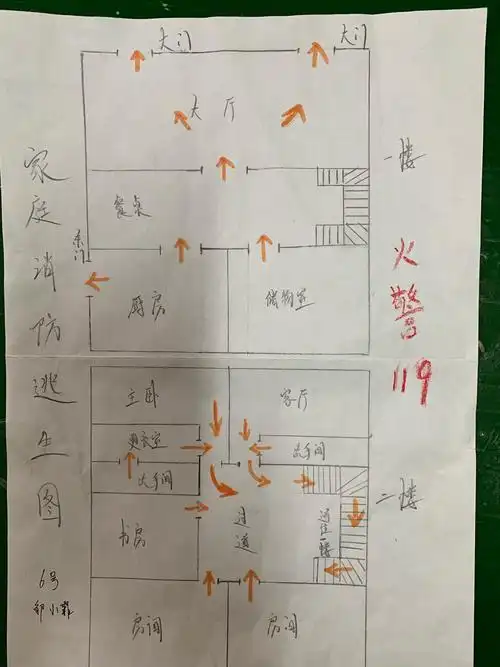 家庭消防逃生图
6号
大门
大门
大厅
一楼
餐桌
东门
厨房
储物室
火警119
主卧
客厅
更衣室
洗手间
洗手间
书房
过道
通往一楼
二楼
房间
房间